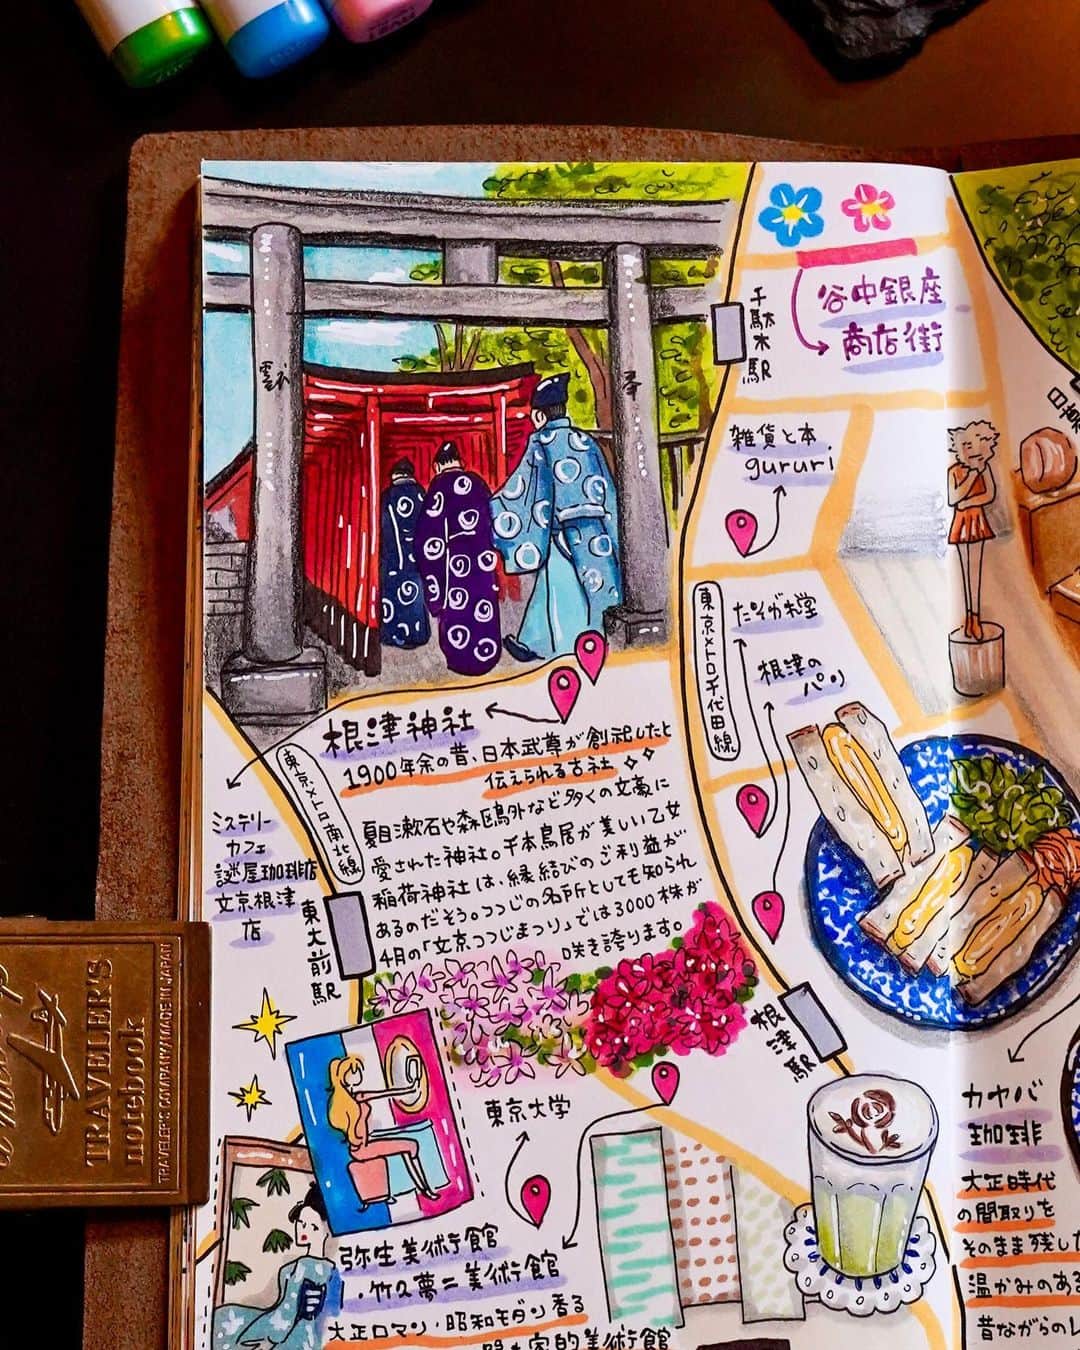 谷中銀座
商店街
千駄木駅
雑貨と本
gururi
東京メトロ千代田線
たそがれ堂
根津の
パン
根津神社
1900年余の昔、日本武尊が創祀したと
伝えられる古社
夏目漱石や森鴎外など多くの文豪に
愛された神社。千本鳥居が美しい乙女
稲荷神社は、縁結びのご利益が
あるのだそう。つつじの名所としても知られ
4月の「文京つつじまつり」では3000株が
咲き誇ります。
東京メトロ南北線
ミステリー
カフェ
謎屋珈琲店
文京根津
店
東大前駅
根津駅
東京大学
カヤバ
珈琲
大正時代
の間取りを
そのまま残した
温かみのある
昔ながらの
弥生美術館
・竹久夢二美術館
大正ロマン・昭和モダン香る
美術館
TRAVELER'S
notebook
TRAVELER'S COMPANY/MADE IN JAPAN